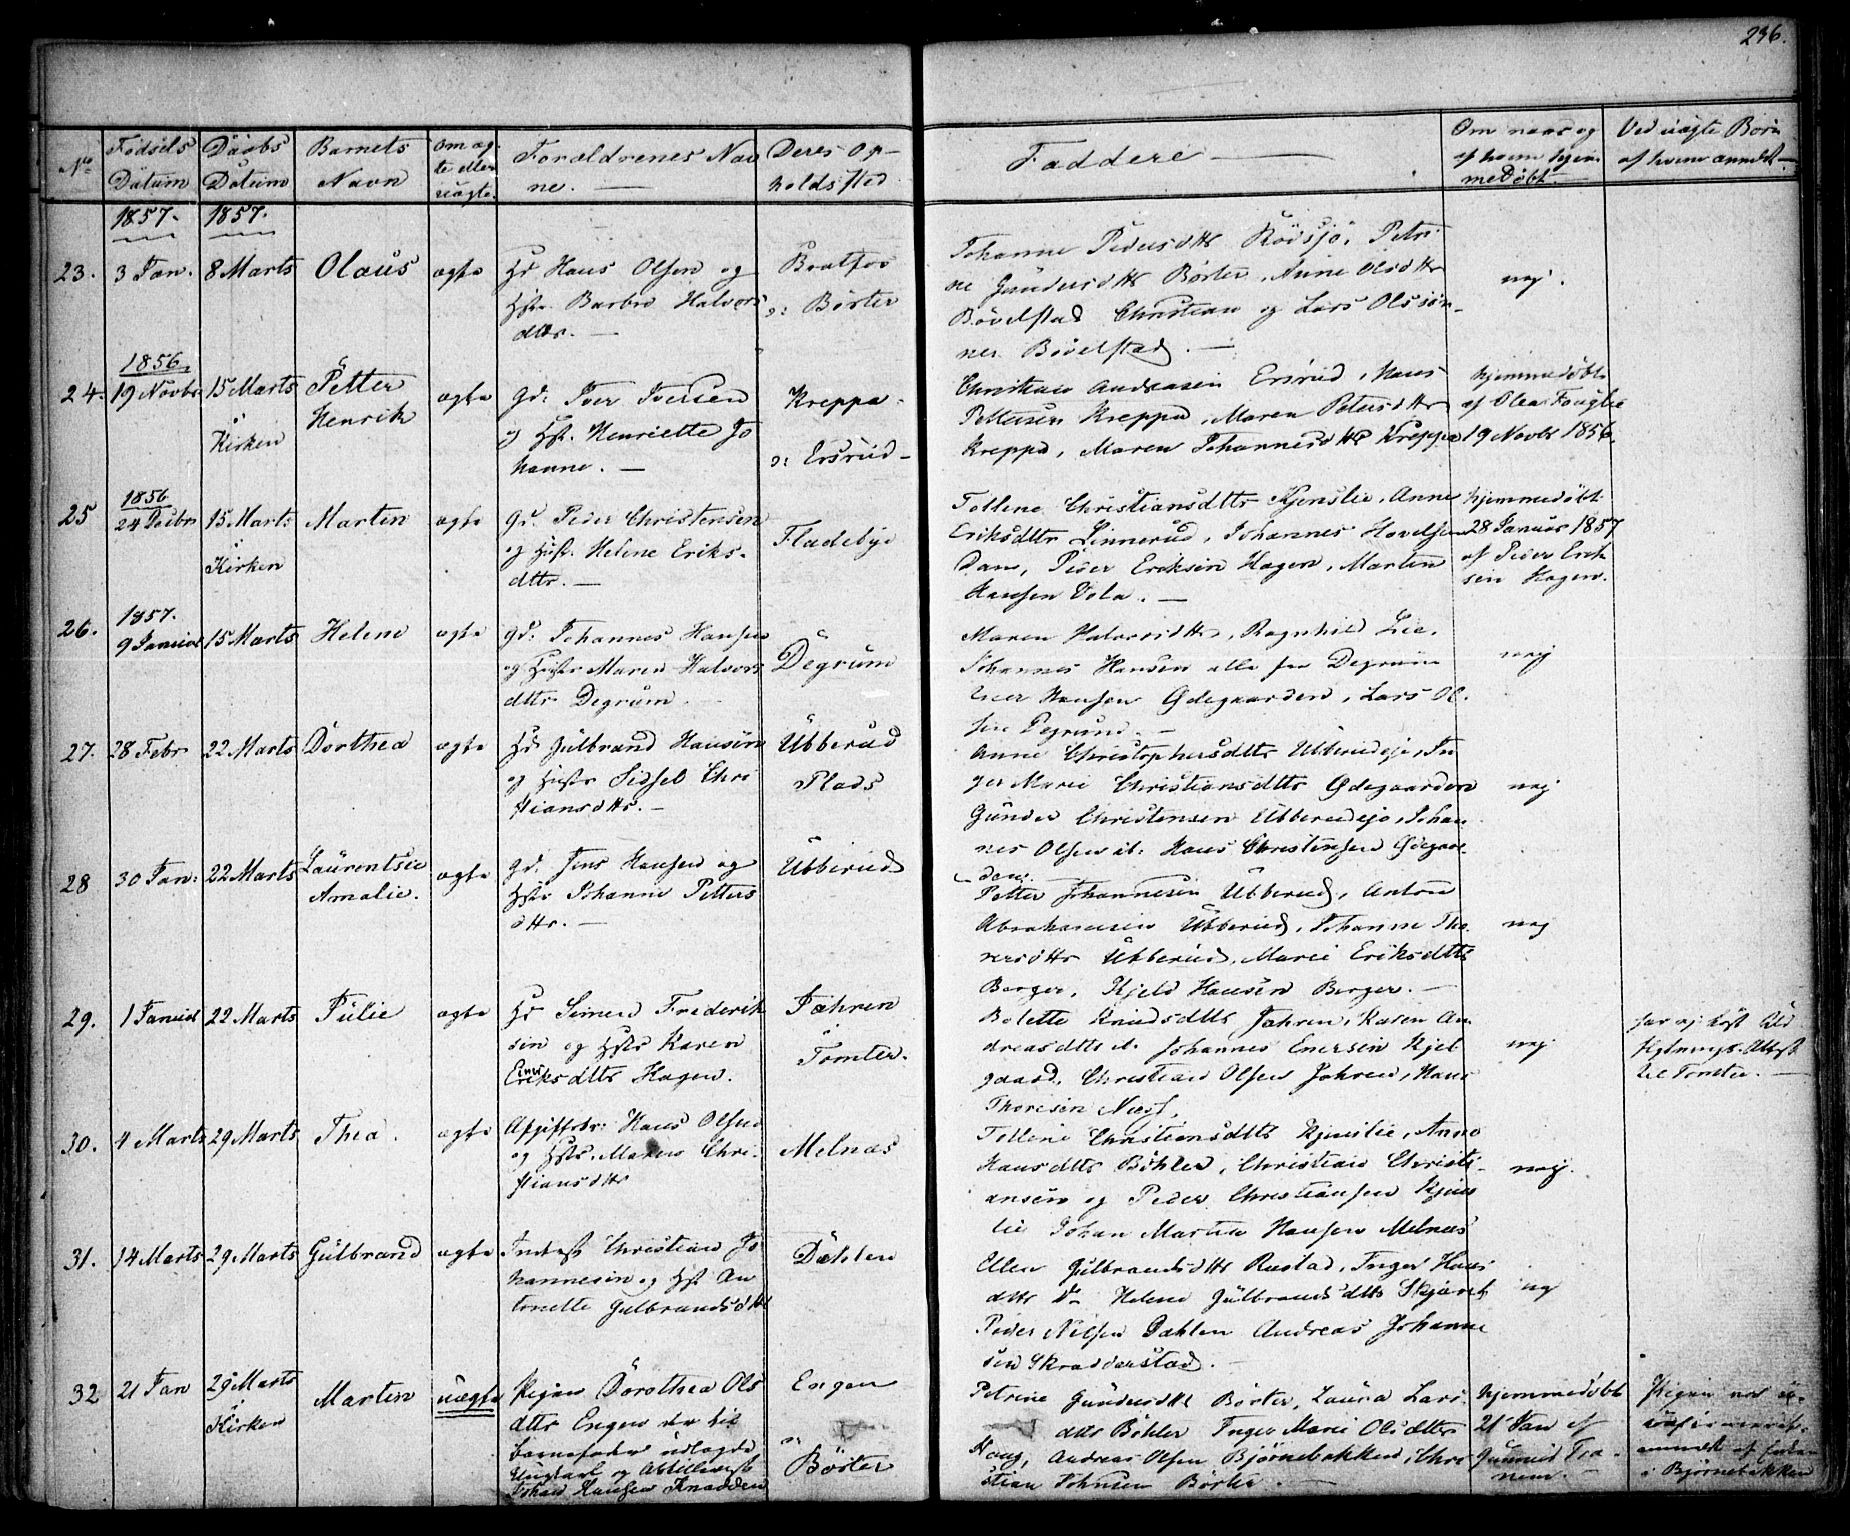 236.
No
Fødsels Datum
Daabs Datum
Barnets Navn
Om ægte eller uægte.
Forældrenes Navne. —
Deres Opholdssted
Faddere —
Om naar og af hvem hjemmedøbt
Ved uægte Børn af hvem anmeldt —
1857. 1857.
23. 3 Jan. 8 Marts Olaus ægte
Hans Olsen og
Barbro Halvors
dttr. —
Bratfos
Børter
Johanne Pedersdttr Rødsjø, Petri
ne Gundersdttr Børter, Anne Olsdttr
Bøvelstad Christian og Lars Olsøn
ner Bøvelstad. —
nej.
1856.
24. 19 Novbr 15 Marts Petter ægte
i Kirken
Henrik
Gd: Iver Iversen
og Hst. Henriette Jo
hanne. —
Kreppa.
Ersrud
Christian Andreasen Ersrud, Hans
Pettersen Kreppa, Maren Petersdttr
Kreppa, Maren Johannesdttr Kreppa
hjemmedøbt
af Olea
19 Novbr 1856.
1856
25 24 Decbr 15 Marts Marten ægte
i Kirken
Gd. Peder Christensen
og Hust. Helene Eriks-
dttr. —
Fladebye
Tollene Christiansdttr Kjenslie, Anne
Eriksdttr Linnerud, Johannes Hovelsen
Dam, Peder Eriksen Hagen, Marten
Hansen Vola. —
hjemmedøbt
28 Januar 1857
af Peder Erik
sen Hagen.
1857.
26. 9 Januar 15 Marts Helene ægte
Gd: Johannes Hansen
og Hustr Maren Halvors
dttr Degrum.
Degrum
Maren Halvorsdttr, Ragnhild Lie,
Johannes Hansen alle fra Degrum
Iver Hansen Ødegaarden, Lars Ol
sen Degrum. —
nej
27. 28 Febr 22 Marts Dorthea ægte
Gulbrand Hansen
og Hustr Sidsel Chri
stiansdttr. —
Ubberud
Plads
Anne Christophersdttr Ubberudeje, In
ger Marie Christiansdttr Ødegaarden
Gunder Christensen Ubberudeje, Johan
nes Olsen it. Hans Christensen Ødegaar
den. —
nej
28 30 Jan: 22 Marts Laurentsie ægte
Amalie.
Gd. Jens Hansen og
Hstr Johanne Petters
dttr. —
Ubberud
Petter Johannesen Ubberud, Anton
Abrahamsen Ubberud, Johanne Tho
resdttr Ubberud, Marie Eriksdttr
Berger, Kjeld Hansen Berger. —
nej
29. 1 Januar 22 Marts Julie ægte
Simen Frederik
sen og Hstr Karen
Eriksdttr Hagen.
Jahren
Tomter.
Bolette Knudsdttr Jahren, Karen An
dreasdttr it. Johannes Enersen Kjel
gaard, Christian Olsen Jahren, Hans
Thoresen Næss.
nej
til Tomter. —
30. 4 Marts 29 Marts Thea. ægte
Hans Olsen
og Hstr. Maren Chri-
stiansdttr
Melnæs
Tollene Christiansdttr Kjenslie, Anne
Hansdttr Bøhler, Christian Christi-
ansen og Peder Christiansen Kjens
lie Johan Martin Hansen Melnæs
nej.
31. 14 Marts 29 Marts Gulbrand ægte
Inderst Christian Jo
hannesen og Hst An
tonette Gulbrandsdttr
Dæhlen
Ellen Gulbrandsdttr Rustad, Inger Hans
dttr Do Helene Gulbrandsdttr Skjæret
Peder Nilsen Dæhlen Andreas Johanne
sen Skradderstad. —
nej
32 21 Jan 29 Marts Marten uægte
i Kirken
Pigen Dorothea Ols
dttr Engen
barnefader udlagde
Ungkarl og
Johan Hansen Knadden
Engen
Børter
Petrine Gundersdttr Børter, Laura Lars
dttr Bøhler Inger Marie Olsdttr
Haug, Andreas Olsen Bjørnebakken, Chri
stian Johnsen Børter. —
hjemmedøbt
21 Jan af
Gunnild Tra
nem. —
Pigen
anmeldt af
i Bjørnebakken